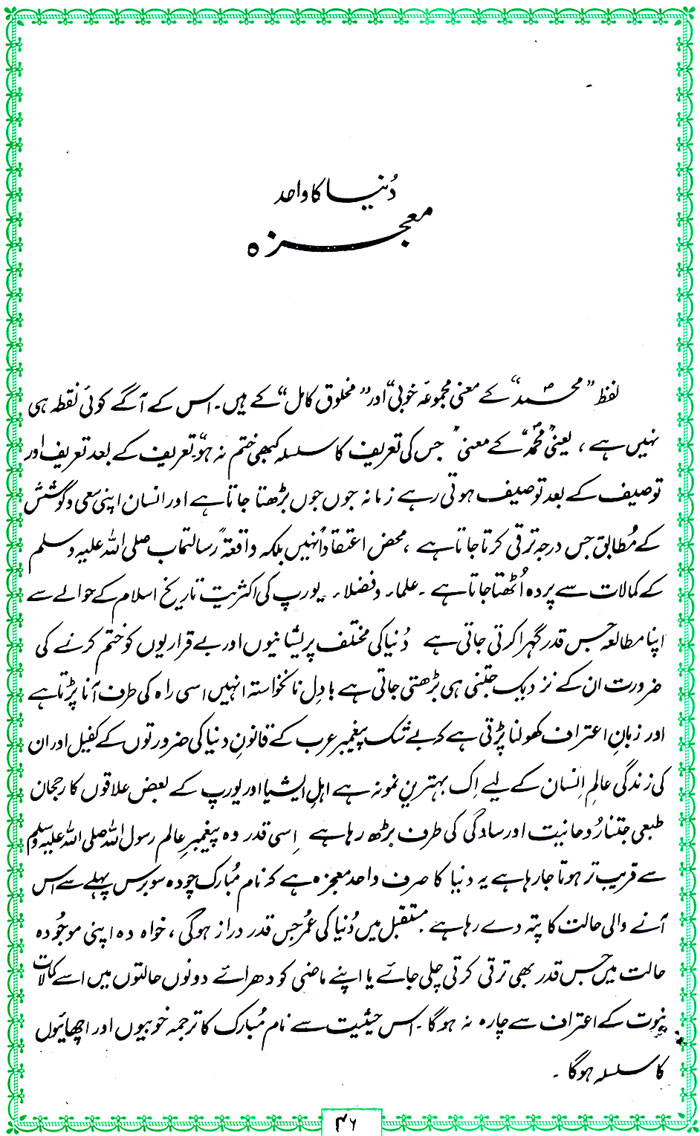 دُنیا کا واحد
معجزہ
لفظ ”محمدؐ“ کے معنی مجموعۂ خوبی“ اور ”مخلوق کامل“ کے ہیں۔ اس کے آگے کوئی نقطہ ہی
نہیں ہے، یعنی ”محمدؐ“ کے معنی ”جس کی تعریف کا سلسلہ کبھی ختم نہ ہو“ تعریف کے بعد تعریف اور
توصیف کے بعد توصیف ہوتی رہے زمانہ جوں جوں بڑھتا جاتا ہے اور انسان اپنی سعی و کوشش
کے مُطابق جس درجہ ترقی کرتا جاتا ہے، محض اعتقاداً نہیں بلکہ واقعۃً رسالتمآب صلی اللہ علیہ وسلم
کے کمالات سے پردہ اُٹھتا جاتا ہے۔ علماء و فضلاء یورپ کی اکثریت تاریخ اسلام کے حوالے سے
اپنا مطالعہ جس قدر گہرا کرتی جاتی ہے دُنیا کی مختلف پریشانیوں اور بے قراریوں کو ختم کرنے کی
ضرورت ان کے نزدیک جتنی ہی بڑھتی جاتی ہے بادِل ناخواستہ انہیں اسی راہ کی طرف آنا پڑتا ہے
اور زبانِ اعتراف کھولنا پڑتی ہے کہ بے شک پیغمبر عرب کے قانون دنیا کی ضرورتوں کے کفیل اور ان
کی زندگی عالمِ انسان کے لیے اِک بہترین نمونہ ہے اہلِ ایشیا اور یورپ کے بعض علاقوں کا رجحان
طبعی جتنا رُوحانیت اور سادگی کی طرف بڑھ رہا ہے اِسی قدر وہ پیغمبرِ عالم رسول اللہ صلی اللہ علیہ وسلم
سے قریب تر ہوتا جا رہا ہے یہ دنیا کا صرف واحد معجزہ ہے کہ نام مُبارک چودہ سو برس پہلے سے اس
آنے والی حالت کا پتہ دے رہا ہے۔ مستقبل میں دُنیا کی عُمر جس قدر دراز ہوگی، خواہ وہ اپنی موجُودہ
حالت میں جس قدر بھی ترقی کرتی چلی جائے یا اپنے ماضی کو دھرائے دونوں حالتوں میں اسے کمالات
نبوت کے اعتراف سے چارہ نہ ہوگا۔ اس حیثیت سے نام مُبارک کا ترجمہ خوبیوں اور اچھائیوں
کا سلسلہ ہوگا۔
۴۶